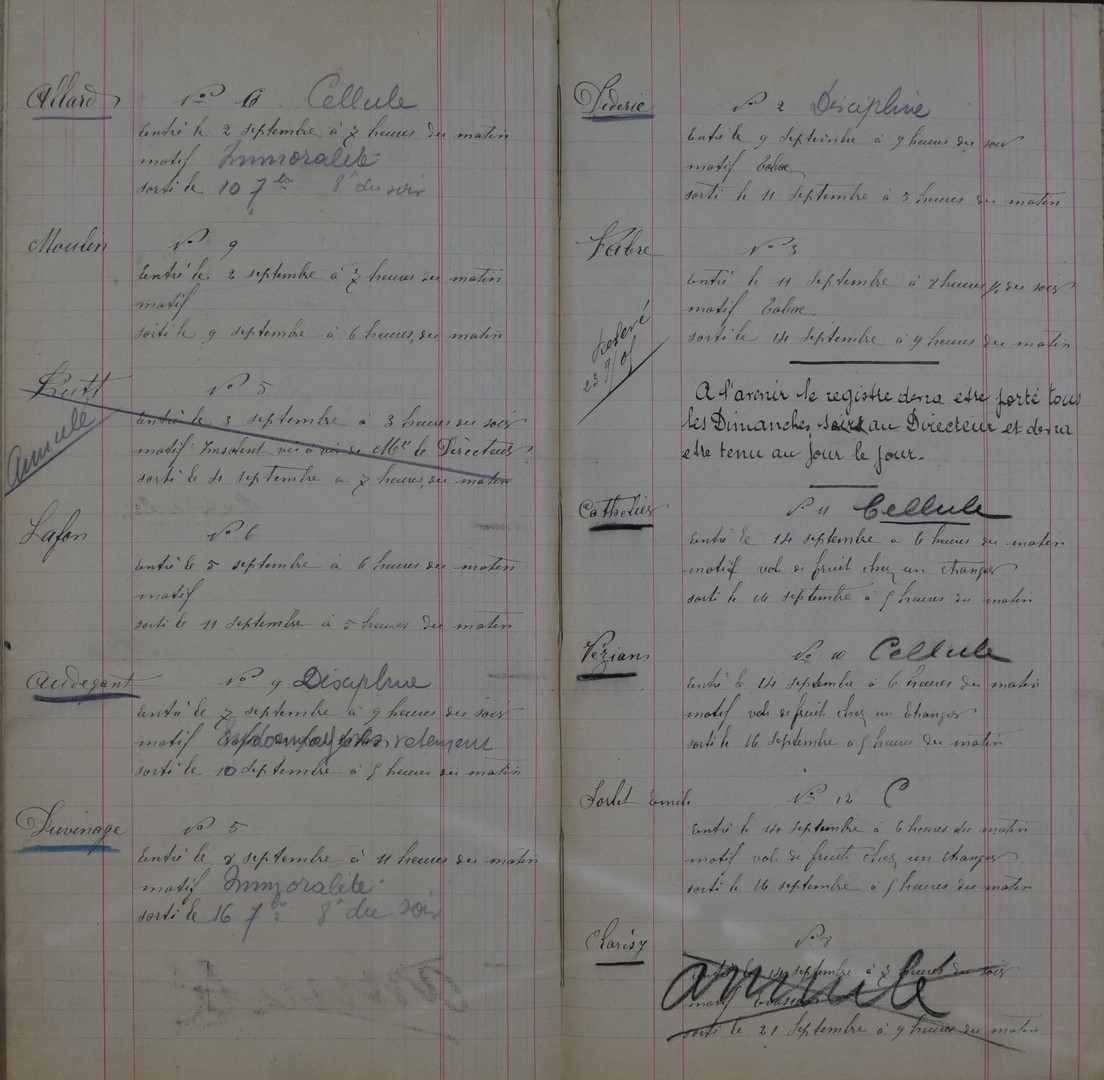 Allard
N° 6 Cellule
Entré le 2 septembre à 7 heures du matin
motif Immoralité
sorti le 10 7bre 8h du soir
Moulin
N° 9
Entré le 2 septembre à 7 heures du matin
motif
sorti le 9 septembre à 6 heures du matin
Butt
N° 5
annulé
entré le 3 septembre à 3 heures du soir
motif Insolent vis à vis de Mr le Directeur
sorti le 4 septembre à 7 heures du matin
Lafon
N° 6
Entré le 5 septembre à 6 heures du matin
motif
sorti le 11 septembre à 5 heures du matin
Audegant
N° 9 Discipline
Entré le 7 septembre à 9 heures du soir
motif vetement
sorti le 10 septembre à 5 heures du matin
Duvinage
N° 5
Entré le 8 septembre à 11 heures du matin
motif Immoralité
sorti le 16 7bre 8h du soir
Diderie
N° 2 Discipline
Entré le 9 Septembre à 9 heures du soir
motif Tabac
sorti le 11 septembre à 5 heures du matin
Fabre
N° 3
Entré le 11 septembre à 8 heures ½ du soir
motif Tabac
sorti le 14 septembre à 9 heures du matin
23 9/01
A l'avenir le registre devra etre porté tous
les Dimanches soirs au Directeur et devra
etre tenu au jour le jour.
Cathelier
N° 11 Cellule
Entré le 14 septembre à 6 heures du matin
motif vol de fruit chez un étranger
sorti le 16 septembre à 5 heures du matin
Vézian
N° 10 Cellule
Entré le 14 septembre à 6 heures du matin
motif vol de fruit chez un Etranger
sorti le 16 septembre à 5 heures du matin
Sorlet Emile
N° 12 C
Entré le 14 septembre à 6 heures du matin
motif vol de fruit chez un étranger
sorti le 16 septembre à 5 heures du matin
Clarisy
N° 8
Entré le 14 septembre à 3 heures du soir
annulé
motif
sorti le 21 septembre à 9 heures du matin